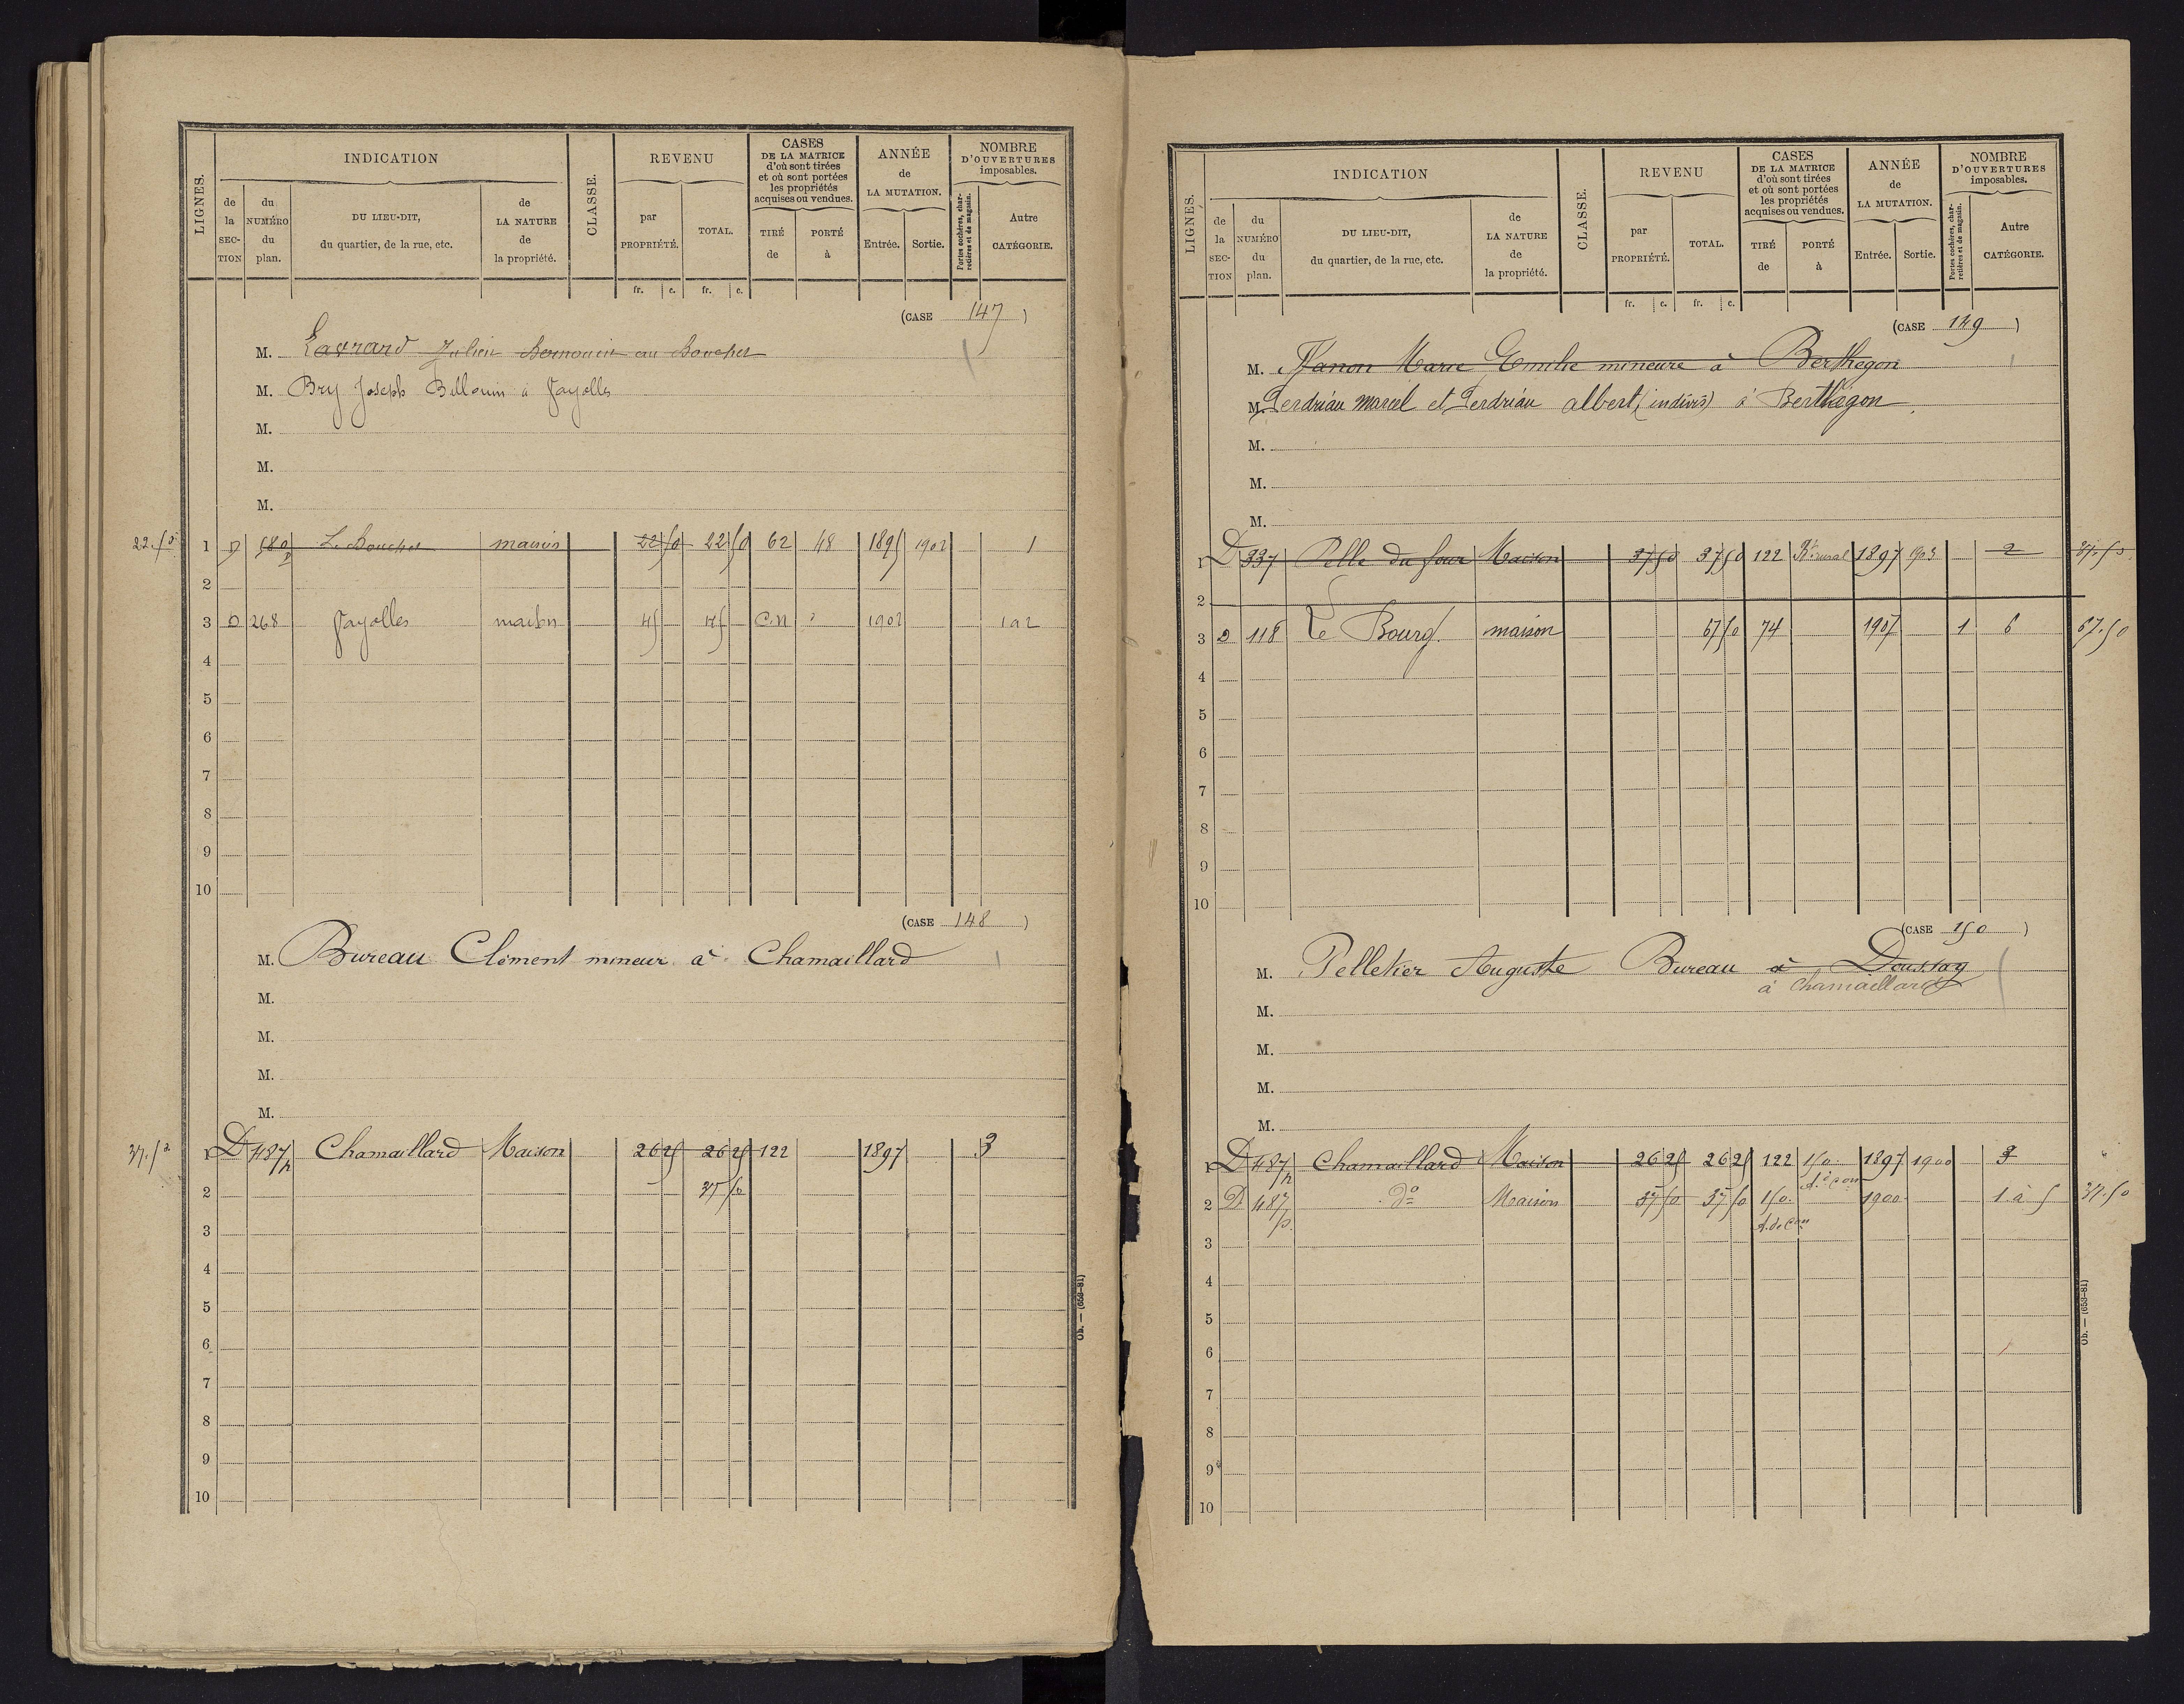 LIGNES. INDICATION CLASSE. REVENU CASES DE LA MATRICE d'où sont tirées et où sont portées les propriétés acquises ou vendues. ANNÉE de LA MUTATION. NOMBRE D'OUVERTURES imposables.
de la SECTION du NUMÉRO du plan. DU LIEU-DIT, du quartier, de la rue, etc. de LA NATURE de la propriété. par PROPRIÉTÉ. TOTAL. TIRÉ de PORTÉ à Entrée. Sortie. Portes cochères, charretières et de magasin. Autre CATÉGORIE.
fr. c. fr. c.
(CASE 147)
M. Lavrard Julien au Bouchet
M. Bry Joseph Billouin à Fayolles
M.
M.
M.
22.50 1 D 580p Le Bouchet maison 22 50 22 50 62 48 1895 1902 1
2
3 D 268 Fayolles maison 45 45 C.N 1902 1 a 2
4
5
6
7
8
9
10
(CASE 148)
M. Bureau Clément mineur à Chamaillard
M.
M.
M.
M.
37.50 1 D 487p Chamaillard Maison 26 25 26 25 122 1897 3
2 37 50
3
4
5
6
7
8
9
10
Ob. — (653-81)
LIGNES. INDICATION CLASSE. REVENU CASES DE LA MATRICE d'où sont tirées et où sont portées les propriétés acquises ou vendues. ANNÉE de LA MUTATION. NOMBRE D'OUVERTURES imposables.
de la SECTION du NUMÉRO du plan. DU LIEU-DIT, du quartier, de la rue, etc. de LA NATURE de la propriété. par PROPRIÉTÉ. TOTAL. TIRÉ de PORTÉ à Entrée. Sortie. Portes cochères, charretières et de magasin. Autre CATÉGORIE.
fr. c. fr. c.
(CASE 149)
M. Marie Emilie mineure à Berthegon
M. Perdriau Marcel et Perdriau albert (indivis) à Berthegon
M.
M.
M.
1 D 337 Pelle du four Maison 37 50 37 50 122 Bt rural 1897 1903 2 37.50
2
3 D 118 Le Bourg maison 67 50 74 1907 1 6 67.50
4
5
6
7
8
9
10
(CASE 150)
M. Pelletier Auguste Bureau à Doussay
à Chamaillard
M.
M.
M.
M.
1 D 487p Chamaillard Maison 26 25 26 25 122 150 A. de con 1897 1900 3
2 D 487p. do Maison 37 50 37 50 150. A. de Con 1900 1 à 5 37.50
3
4
5
6
7
8
9
10
Ob. — (653-81)